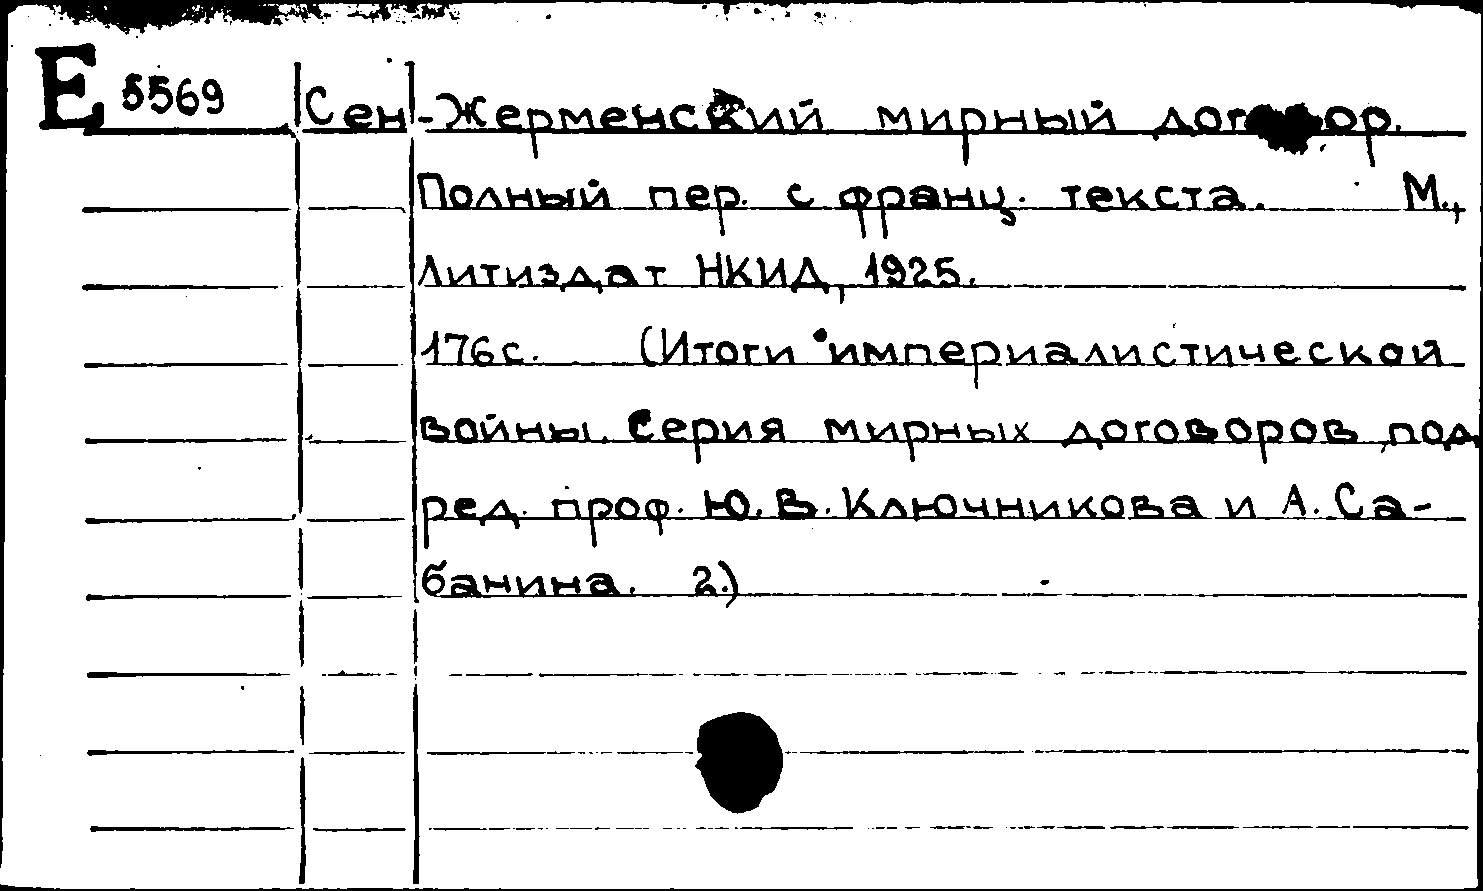 Е 5569 Сен-Женменский мирный договор.
Полный пер. с франц. текста. М.,
Литиздат НКИД, 1925.
176с. (Итоги империалистической
войны. Серия мирных договоров под
ред. проф. Ю. В. Ключникова и А. Са-
банина. 2.)